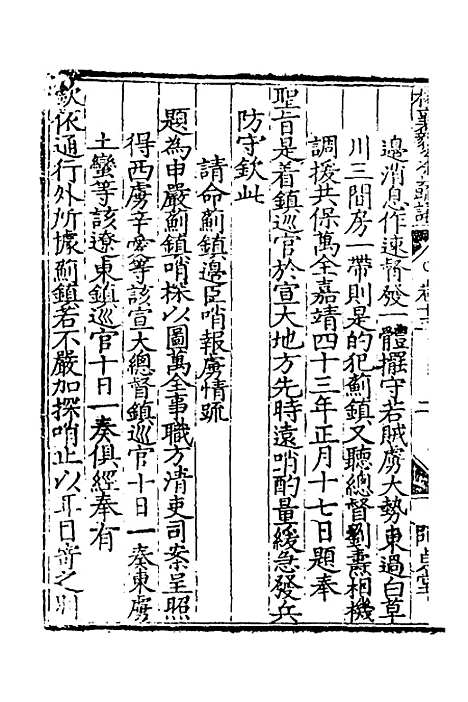 邉消息作速督發一體擺守若賊虜大勢東過白草
川三間房一帶則是的犯薊鎮又聽總督劉燾相機
調援共保萬全嘉靖四十三年正月十七日題奉
聖旨是着鎮巡官於宣大地方先時遠哨酌量緩急發兵
防守欽此
請命薊鎮邉臣哨報虜情疏
題為申嚴薊鎮哨探以圖萬全事職方清吏司案呈照
得西虜辛愛等該宣大總督鎮巡官十日一奏東虜
土蠻等該遼東鎮巡官十日一奏俱經奉有
欽依通行外所據薊鎮若不嚴加探哨止以耳目寄之別